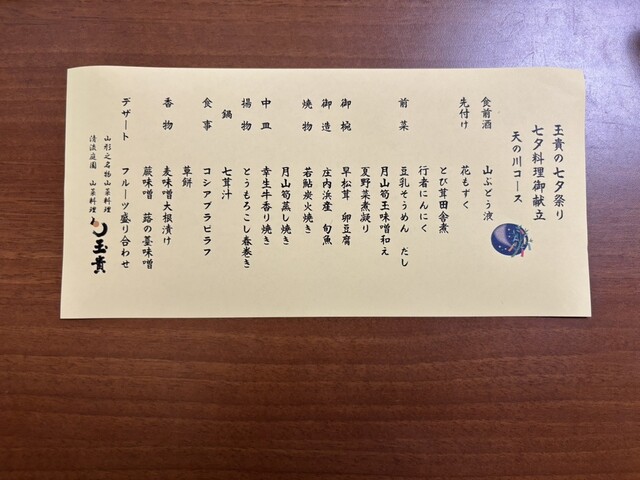 玉貴の七夕祭り
七夕料理御献立
天の川コース
食前酒 山ぶどう液
先付け 花もずく
とび茸田舎煮
行者にんにく
前菜 豆乳そうめん だし
月山筍玉味噌和え
夏野菜煮凝り
御椀 早松茸 卵豆腐
御造 庄内浜産 旬魚
焼物 若鮎炭火焼き
月山筍蒸し焼き
中皿 幸生牛香り焼き
揚物 とうもろこし春巻き
鍋 七茸汁
食事 コシアブラピラフ
草餅
香物 麦味噌大根漬け
蕨味噌 蕗の薹味噌
デザート フルーツ盛り合わせ
山形之名物山菜料理
清流庭園 山菜料理
玉貴